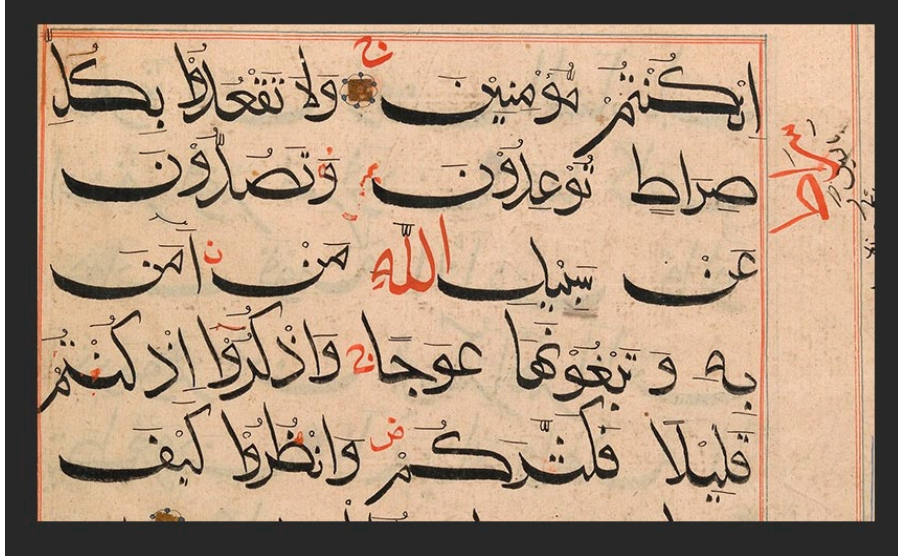 اِنْ كُنْتُمْ مُؤْمِنِينَ ج وَلَا تَقْعُدُوا بِكُلِّ
صِرَاطٍ تُوْعِدُوْنَ وَتَصُدُّوْنَ
عَنْ سَبِيْلِ اللّٰهِ مَنْ اٰمَنَ
بِهٖ وَتَبْغُوْنَهَا عِوَجًا ج وَاذْكُرُوْا اِذْ كُنْتُمْ
قَلِيْلًا فَكَثَّرَكُمْ ص وَانْظُرُوْا كَيْفَ